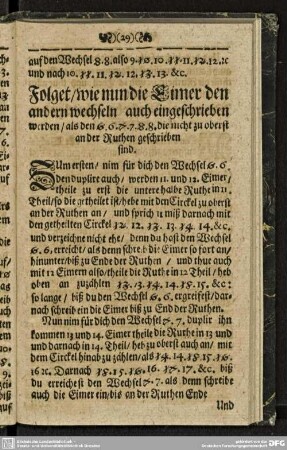 (29)
auf den Wechsel 8.8. also 9. 10. 10. 11. 11. 12. 12. ꝛc
und nach 10. 11. 11. 12. 12. 13. 13. &c.
Folget/ wie nun die Eimer den
andern wechseln auch eingeschrieben
werden/ als den 6. 6. 7. 7. 8. 8. die nicht zu oberst
an der Ruthen geschrieben
sind.
Zum ersten/ nim für dich den Wechsel 6. 6.
den duplire auch/ werden 11. und 12. Eimer/
theile zu erst die untere halbe Ruthe in 11.
Theil/ so die getheilet ist/ hebe mit den Circkel zu oberst
an der Ruthen an/ und sprich 11 miß darnach mit
den getheilten Circkel 12. 12. 13. 13. 14. 14. &c.
und verzeichne nicht ehe/ denn du hast den Wechsel
6. 6. erreicht/ als denn schreib die Eimer so fort an/
hinunter/ biß zu Ende der Ruthen/ und thue auch
mit 12 Eimern also/ theile die Ruthe in 12 Theil/ heb
oben an zuzählen 13. 13. 14. 14. 15. 15. &c:
so lange/ biß du den Wechsel 6. 6. ergreifest/ dar-
nach schreib ein die Eimer biß zu End der Ruthen.
Nun nim für dich den Wechsel 7. 7. duplir ihn
kommen 13 und 14. Eimer theile die Ruthe in 13 und
und darnach in 14. Theil/ heb zu oberst auch an/ mit
dem Circkel hinab zu zählen/ als 14. 14. 15. 15. 16.
16 ꝛc. Darnach 15. 15. 16. 16. 17. 17. &c. biß
du erreichest den Wechsel 7. 7. als denn schreibe
auch die Eimer ein/ bis an der Ruthen Ende
Und